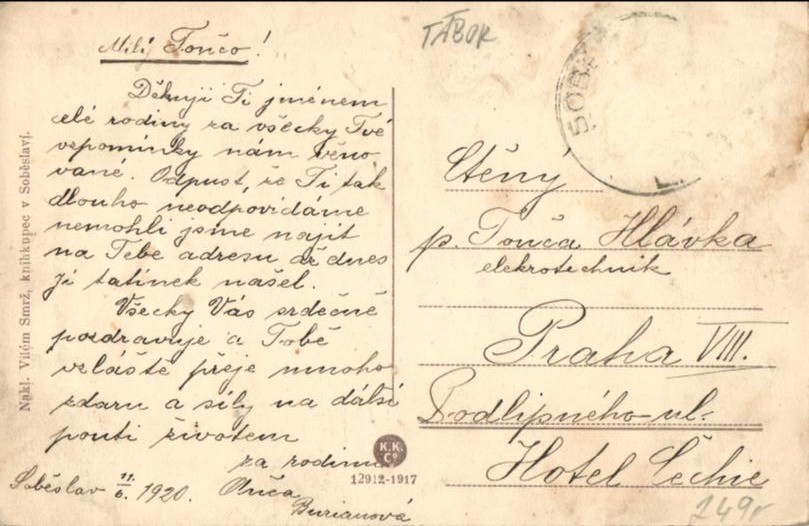 Milý Tončo!
Děkuji Ti jménem
celé rodiny za všecky Tvé
vzpomínky nám věno
vané. Odpust, že Ti tak
dlouho neodpovídáme
nemohli jsme najít
na Tebe adresu až dnes
ji tatínek našel.
Všecky Vás srdečně
pozdravuje a Tobě
vzláště přeje mnoho
zdaru a síly na další
pouti životem
za rodinu
Soběslav 11/6. 1920.
Burianová
Nakl. Vilém Smrž, knihkupec v Soběslaví.
K.K.
Co
12912-1917
TÁBOR
SOB
Ctěný
p. Tonča Hlávka
elekrotechnik
Praha VIII.
Podlipného ul.
Hotel Čechie